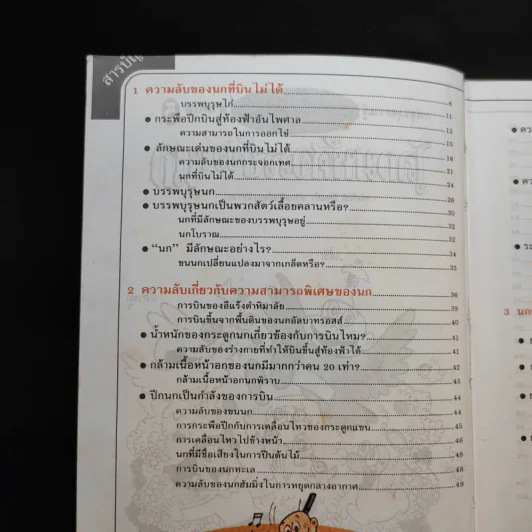 สารบัญ
1 ความลับของนกที่บินไม่ได้ 8
บรรพบุรุษไก่ 11
● กระพือปีกบินสู่ท้องฟ้าอันไพศาล 12
ความสามารถในการออกไข่ 15
● ลักษณะเด่นของนกที่บินไม่ได้ 16
ความลับของนกกระจอกเทศ 21
นกที่บินไม่ได้ 24
● บรรพบุรุษนก 26
● บรรพบุรุษนกเป็นพวกสัตว์เลื้อยคลานหรือ? 30
นกที่มีลักษณะของบรรพบุรุษอยู่ 32
นกโบราณ 32
● “นก” มีลักษณะอย่างไร? 34
ขนนกเปลี่ยนแปลงมาจากเกล็ดหรือ? 35
2 ความลับเกี่ยวกับความสามารถพิเศษของนก 36
การบินของอีแร้งดำหิมาลัย 39
การบินขึ้นจากพื้นดินของนกอัลบาทรอสส์ 40
● น้ำหนักของกระดูกนกเกี่ยวข้องกับการบินไหม? 41
ความลับของร่างกายที่ทำให้บินขึ้นสู่ท้องฟ้าได้ 41
● กล้ามเนื้อหน้าอกของนกมีมากกว่าคน 20 เท่า? 42
กล้ามเนื้อหน้าอกนกพิราบ 43
● ปีกนกเป็นกำลังของการบิน 44
ความลับของขนนก 44
การกระพือปีกกับการเคลื่อนไหวของกระดูกแขน 45
การเคลื่อนไหวไปข้างหน้า 46
นกที่มีชื่อเสียงในการปีนต้นไม้ 48
การบินของนกทะเล 48
ความลับของนกฮัมมิ่งในการหยุดกลางอากาศ 49
3